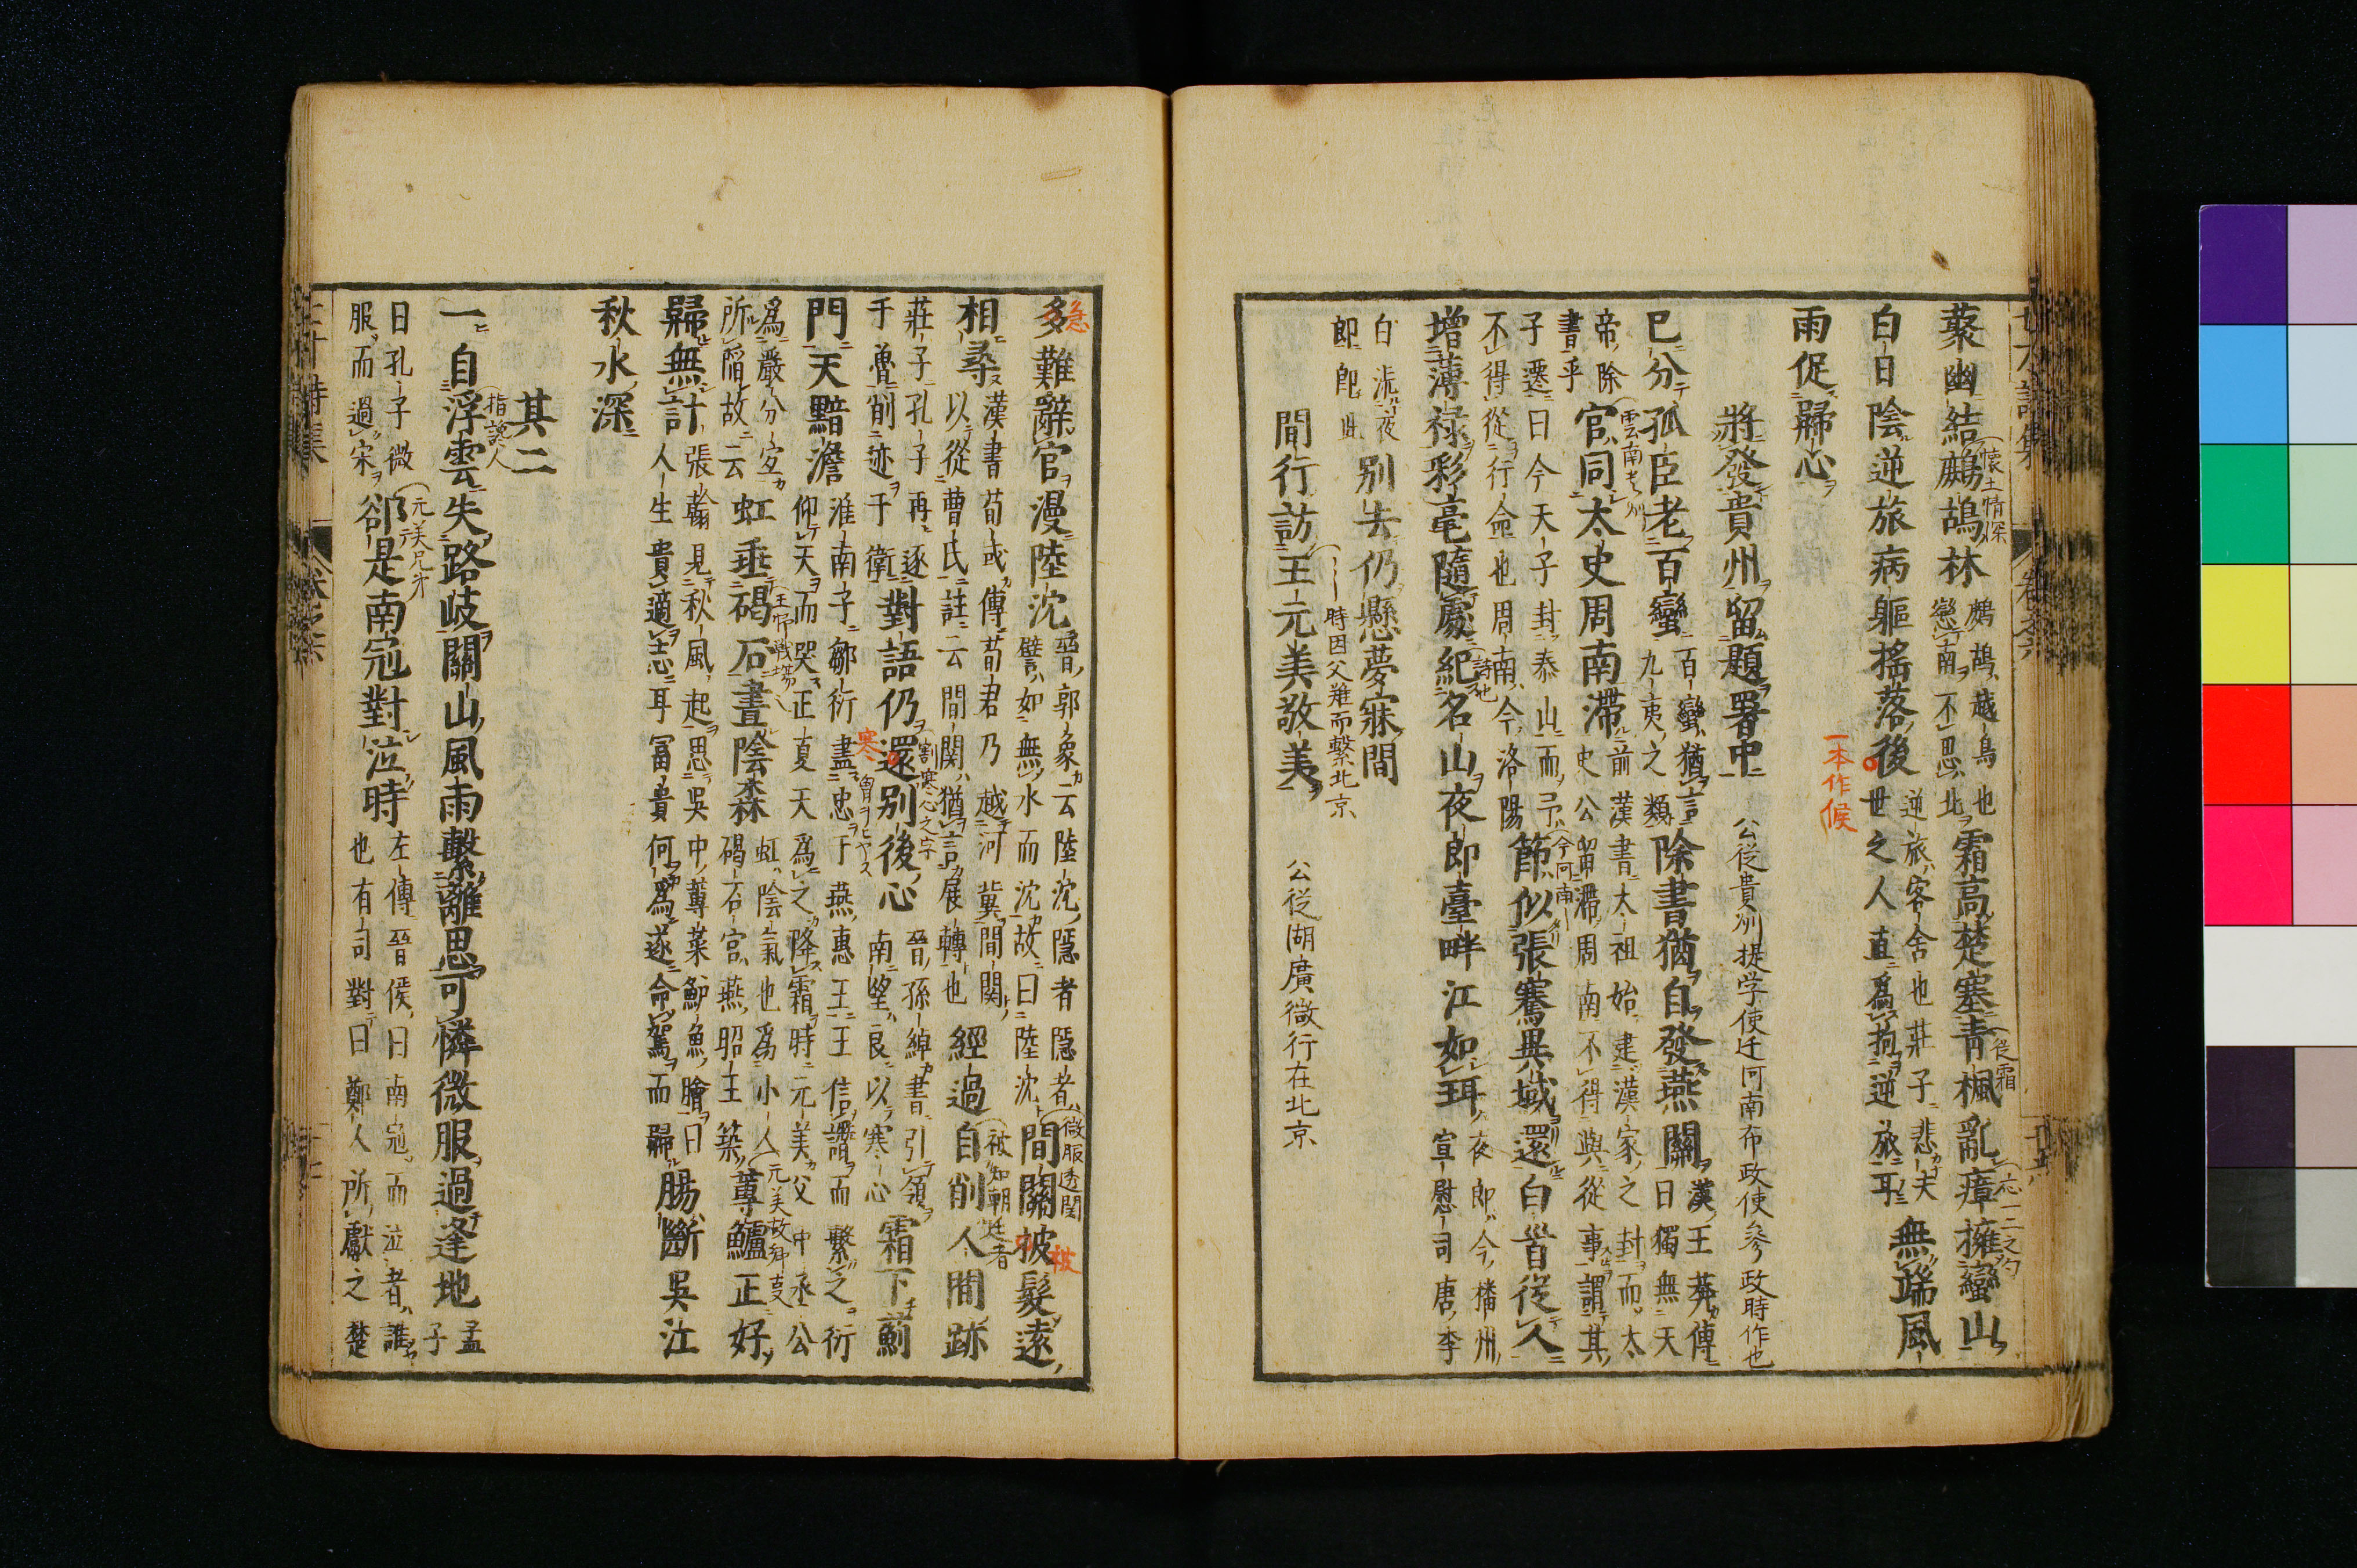 藂幽結鷓鴣林鷓鴣越鳥也戀南不思北霜高楚塞靑楓亂瘴擁蠻山
白日陰逆旅病軀搖落後逆旅客舍也莊子悲夫世之人直爲拘逆旅耳無端風
雨促歸心
將發貴州留題署中 公從貴州提学使迁河南布政使参政時作也
已分孤臣老百蠻百蠻猶言九夷之類除書猶自發燕關漢王莽傳曰獨無天
帝除書乎官同太史周南滯前漢書太祖始建漢家之封而太史公留滯周南不得與從事謂其
子遷曰今天子封泰山而予不得從行命也周南今洛陽節似張騫異域還白首從人
增薄禄彩毫隨處紀名山夜郎臺畔江如珥夜郎今播州宣慰司唐李
白流夜郎即此別去仍懸夢寐間
間行訪王元美敬美 公従湖廣微行在北京
時因父難而繫北京
一本作候
懷土情深
從霜
雲南老別
今河南
詩也
多難辭官漫陸沈晉郭象云陸沈隱者隱者譬如無水而沈故曰陸沈間關被髮遠
相尋漢書荀彧傳荀君乃越河冀間關以從曹氏註云間関猶言展轉也經過自削人間跡
莊子孔子再逐于魯削迹于衛對語仍還別後心晉孫綽書引領南望良以寒心霜下薊
門天黯澹淮南子鄒衍盡忠于燕惠王王信譖而繫之衍仰天而哭正夏天爲之降霜時元美父中丞公
爲嚴分宜所陷故云虹垂碣石晝陰森虹陰氣也爲小人碣石宮燕昭王築蓴鱸正好
歸無計張翰見秋風起思吳中蓴菜鱸魚膾曰人生貴適志耳冨貴何爲遂命駕而歸腸斷吳江
秋水深
其二
一自浮雲失路岐關山風雨繫離思可憐微服過逢地孟子
曰孔子微服而過宋郤是南冠對泣時左傳晉侯曰南冠而泣者誰也有司對曰鄭人所獻之楚
微服透関
被知朝廷者
割寒心之字
寒
元美故郷支
指說人
元美兄弟